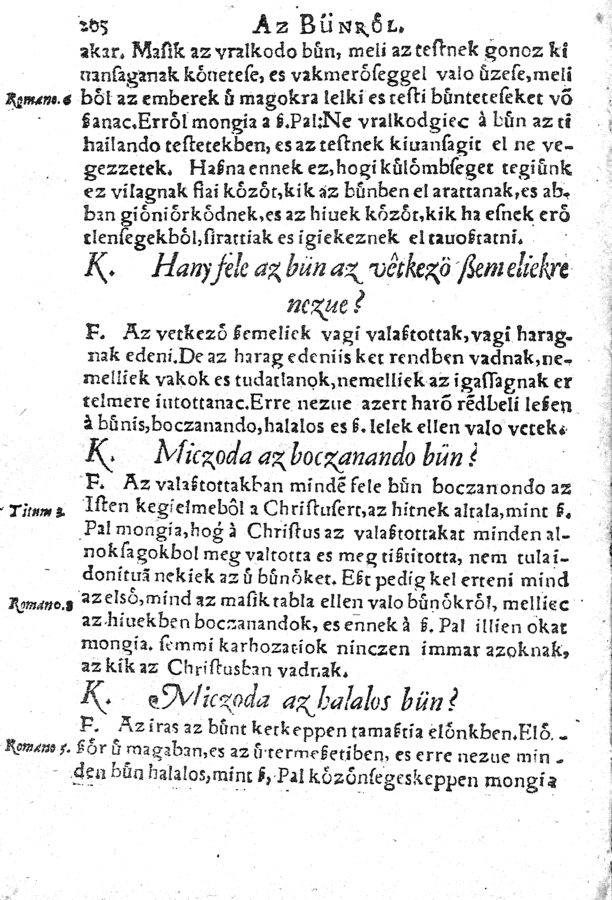 265 Az Bűnről.
akar. Maſik az vralkodo bűn, meli az teſtnek gonoz ki
uanſaganak kőuetese, es vakmerőſeggel valo űzeſe, meli
Romano. 6 ből az emberek ű magokra lelki es teſti bűnteteſeket vő
ßanac. Erről mongia a ß. Pal: Ne vralkodgiec à bűn az ti
hailando teſtetekben, es az teſtnek kiuanſagit el ne ve-
gezzetek. Haßna ennek ez, hogi kűlőmbſeget tegiűnk
ez vilagnak fiai kőzőt, kik az bűnben el arattanak, es ab-
ban giőniőrkődnek, es az hiuek kőzőt, kik ha eſnek erő
tlenſegekből, ſirattiak es igiekeznek el tauoßtatni.
K. Hany fele az bün az vêtkező ßemeliekre
nezue?
F. Az vetkező ßemeliek vagi valaßtottak, vagi harag-
nak edeni. De az harag edeniis ket rendben vadnak, ne-
melliek vakok es tudatlanok, nemelliek az igaſſagnak er
telmere iutottanac. Erre nezue azert harõ rẽdbeli leßen
à bűnis, boczanando, halalos es ß. lelek ellen valo vetek.
K. Miczoda az boczanando bün?
F. Az valaßtottakban mindẽ fele bűn boczanondo az
Titum 2. Iſten kegielmeből a Chriſtuſert, az hitnek altala, mint ß.
Pal mongia, hog à Chriſtus az valaßtottakat minden al-
nokſagokbol meg valtotta es meg tißtitotta, nem tulai-
donituã nekiek az ű bűnőket. Eßt pedig kel erteni mind
Romano. 8 az első, mind az maſik tabla ellen valo bűnőkről, melliec
az hiuekben boczanandok, es ennek à ß. Pal illien okat
mongia. ſemmi karhozatiok ninczen immar azoknak,
az kik az Chriſtusban vadnak.
K. Miczoda az halalos bün?
F. Az iras az bűnt ketkeppen tamaſtia előnkben. Elő-
Romano 5. ßőr ű magaban, es az ű termeßetiben, es erre nezue min-
den bűn halalos, mint ß, Pal kőzőnſegeskeppen mongia